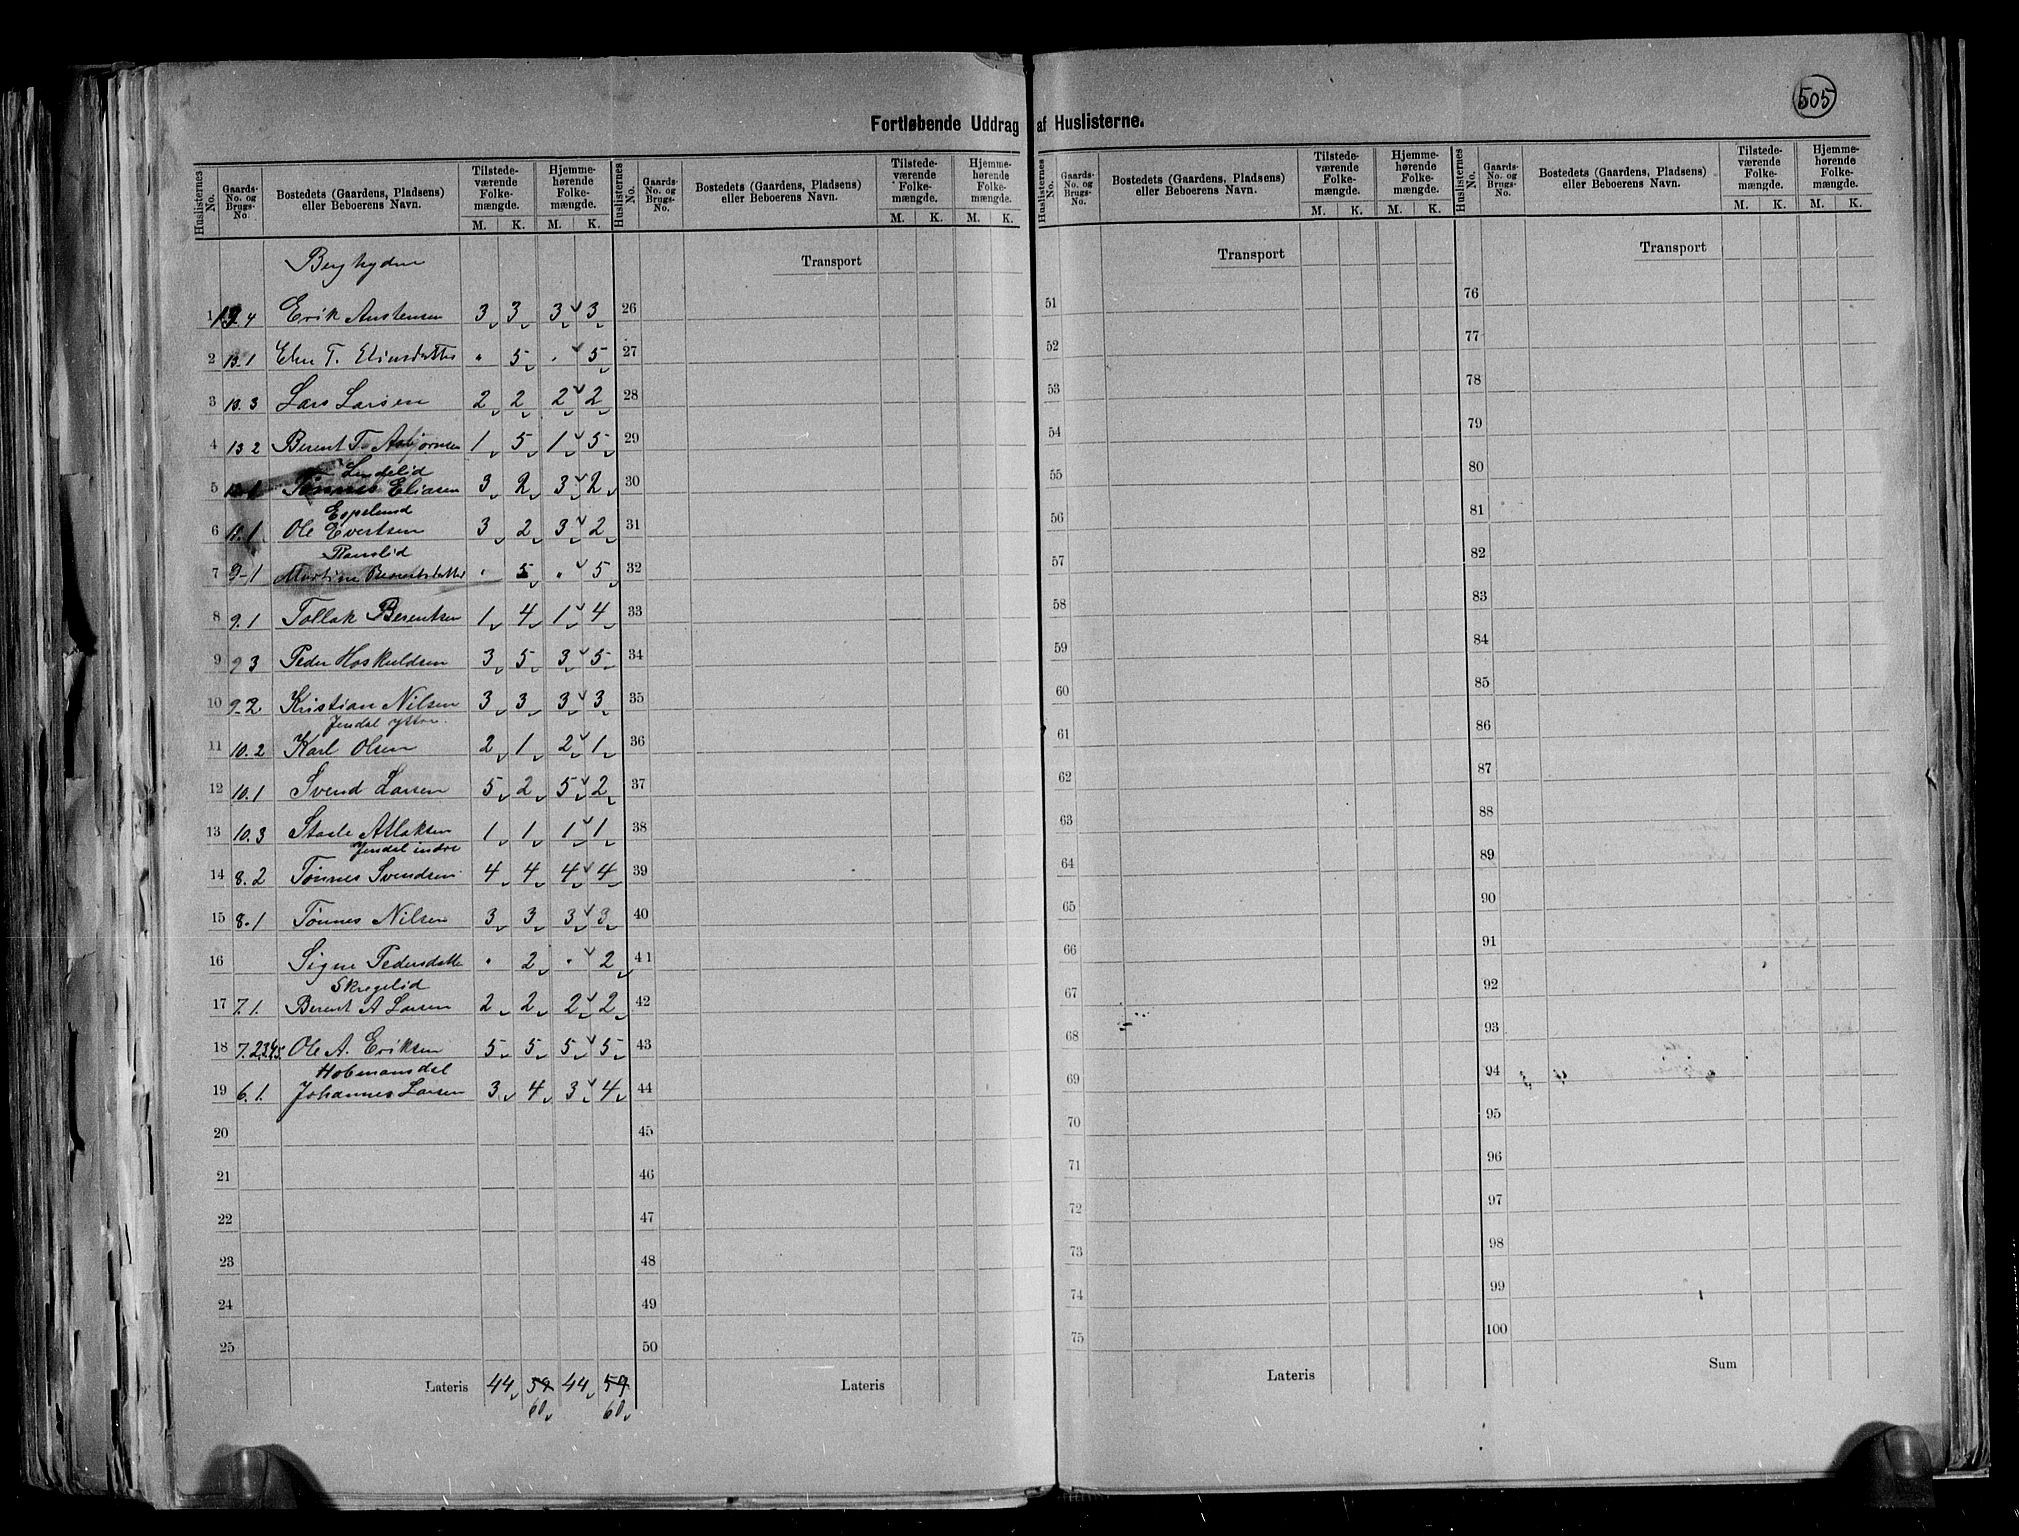 505
Fortløbende Uddrag af Huslisterne.
Huslisternes No. Gaards-No. og Brugs-No. Bostedets (Gaardens, Pladsens) eller Beboerens Navn. Tilstede-værende Folke-mængde. M. K. Hjemme-hørende Folke-mængde. M. K.
1 13.4 Erik Austensen 3 3 3 3
2 13.1 T. Eliasdatter " 5 " 5
3 13.3 Lars Larsen 2 2 2 2
4 13.2 Berent T. Asbjørnsen 1 5 1 5
Lindelid
5 Tønnes Eliasen 3 2 3 2
Espelund
6 11.1 Ole Evertsen 3 2 3 2
7 9-1 Martine Berentsdatter " 5 " 5
8 9.1 Tollak Berentsen 1 4 1 4
9 9 3 Peder Hoskuldsen 3 5 3 5
10 9-2 Kristian Nilsen 3 3 3 3
Jendal yttre
11 10.2 Karl Olsen 2 1 2 1
12 10.1 Svend Larsen 5 2 5 2
13 10.3 Staale Atlaksen 1 1 1 1
Jendal indre
14 8.2 Tønnes Svendsen 4 4 4 4
15 8.1 Tønnes Nilsen 3 3 3 3
16 Signe Pedersdatte " 2 " 2
Skregelid
17 7.1. Berent A Larsen 2 2 2 2
18 7.2345. Ole A. Eriksen 5 5 5 5
19 6.1. Johannes Larsen 3 4 3 4
20
21
22
23
24
25
Lateris 44 59 44 59
60 60
Huslisternes No. Gaards-No. og Brugs-No. Bostedets (Gaardens, Pladsens) eller Beboerens Navn. Tilstede-værende Folke-mængde. M. K. Hjemme-hørende Folke-mængde. M. K.
Transport
26
27
28
29
30
31
32
33
34
35
36
37
38
39
40
41
42
43
44
45
46
47
48
49
50
Lateris
Huslisternes No. Gaards-No. og Brugs-No. Bostedets (Gaardens, Pladsens) eller Beboerens Navn. Tilstede-værende Folke-mængde. M. K. Hjemme-hørende Folke-mængde. M. K.
Transport
51
52
53
54
55
56
57
58
59
60
61
62
63
64
65
66
67
68
69
70
71
72
73
74
75
Lateris
Huslisternes No. Gaards-No. og Brugs-No. Bostedets (Gaardens, Pladsens) eller Beboerens Navn. Tilstede-værende Folke-mængde. M. K. Hjemme-hørende Folke-mængde. M. K.
Transport
76
77
78
79
80
81
82
83
84
85
86
87
88
89
90
91
92
93
94
95
96
97
98
99
100
Sum